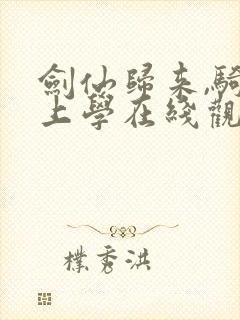 劍仙歸来,騎
上學在綫觀
樸秀洪